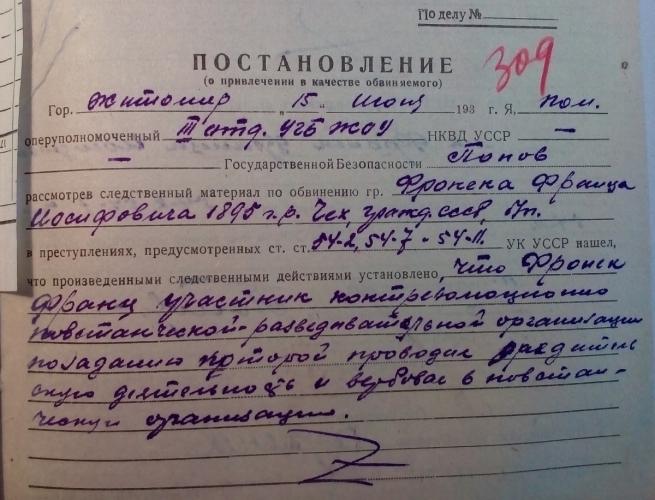 По делу №
309
ПОСТАНОВЛЕНИЕ
(о привлечении в качестве обвиняемого)
Гор. Житомир „15“ Июня 193 г. Я, пом.
оперуполномоченный III отд. УГБ ЖОУ НКВД УССР —
— Государственной Безопасности Попов
рассмотрев следственный материал по обвинению гр. Фронека Франца
Иосифовича 1895 г.р. Чех, гражд. ссср,
в преступлениях, предусмотренных ст. ст. 54-2, 54-7 - 54-11. УК УССР нашел,
что произведенными следственными действиями установлено, что Фронек
Франц участник контрреволюционно
повстанческой-разведывательной организации
по заданию которой проводил вредитель
скую деятельность и вербовал в повстан-
ческую организацию.